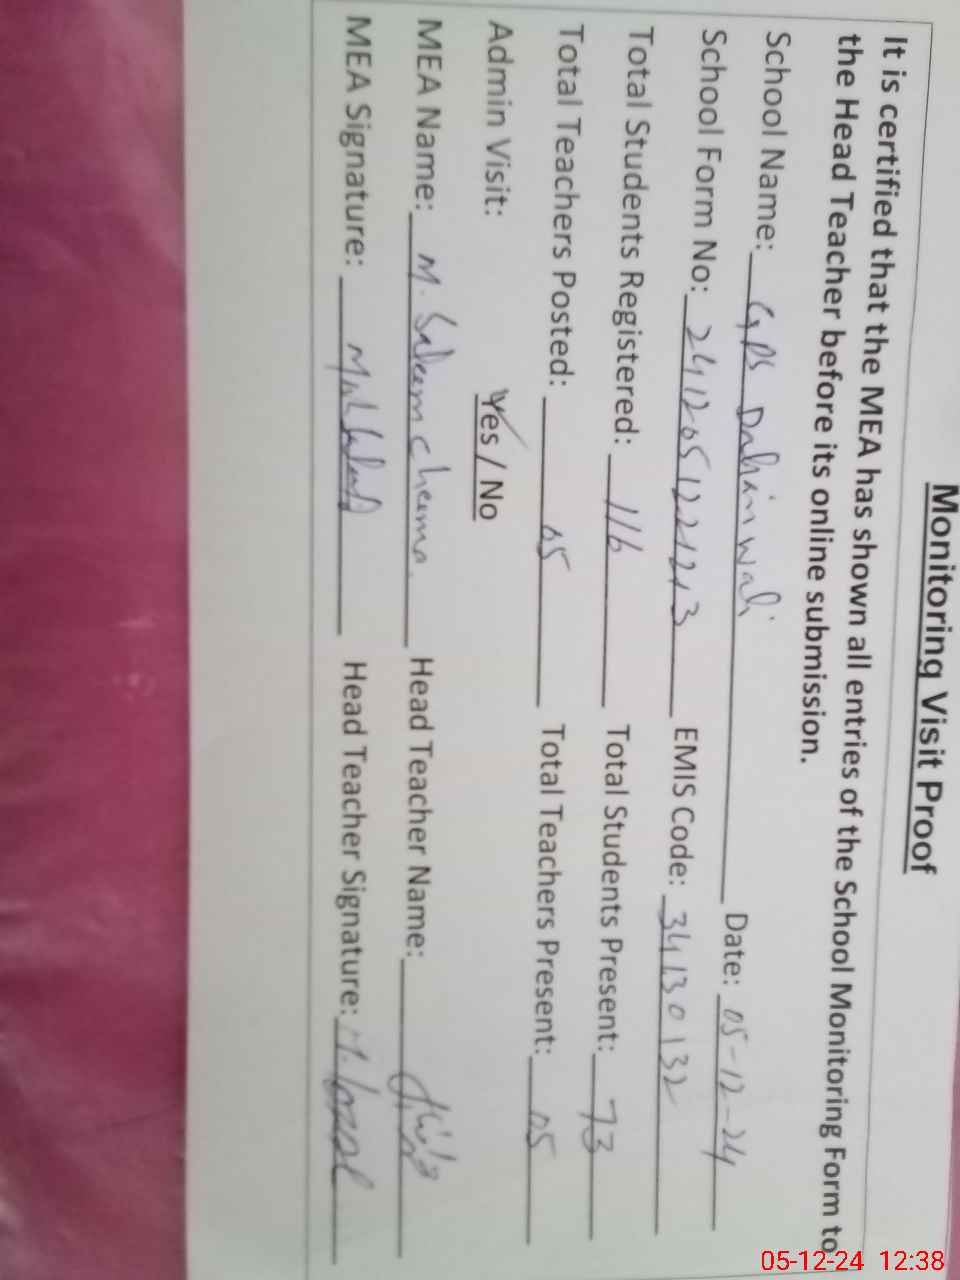 Monitoring Visit Proof
It is certified that the MEA has shown all entries of the School Monitoring Form to
the Head Teacher before its online submission.
School Name: GPS Dahinwali Date: 05-12-24
School Form No: 2412051221213 EMIS Code: 34130132
Total Students Registered: 116 Total Students Present: 73
Total Teachers Posted: 05 Total Teachers Present: 05
Admin Visit: Yes / No
MEA Name: M. Saleem cheema. Head Teacher Name:
MEA Signature: Head Teacher Signature:
05-12-24 12:38